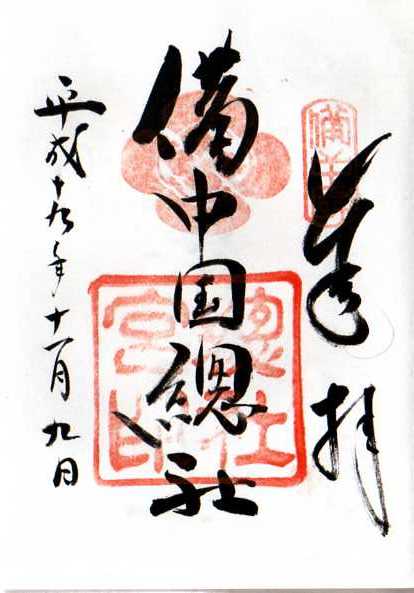 奉拝
備中国總社
平成十九年十一月九日
總社宮印